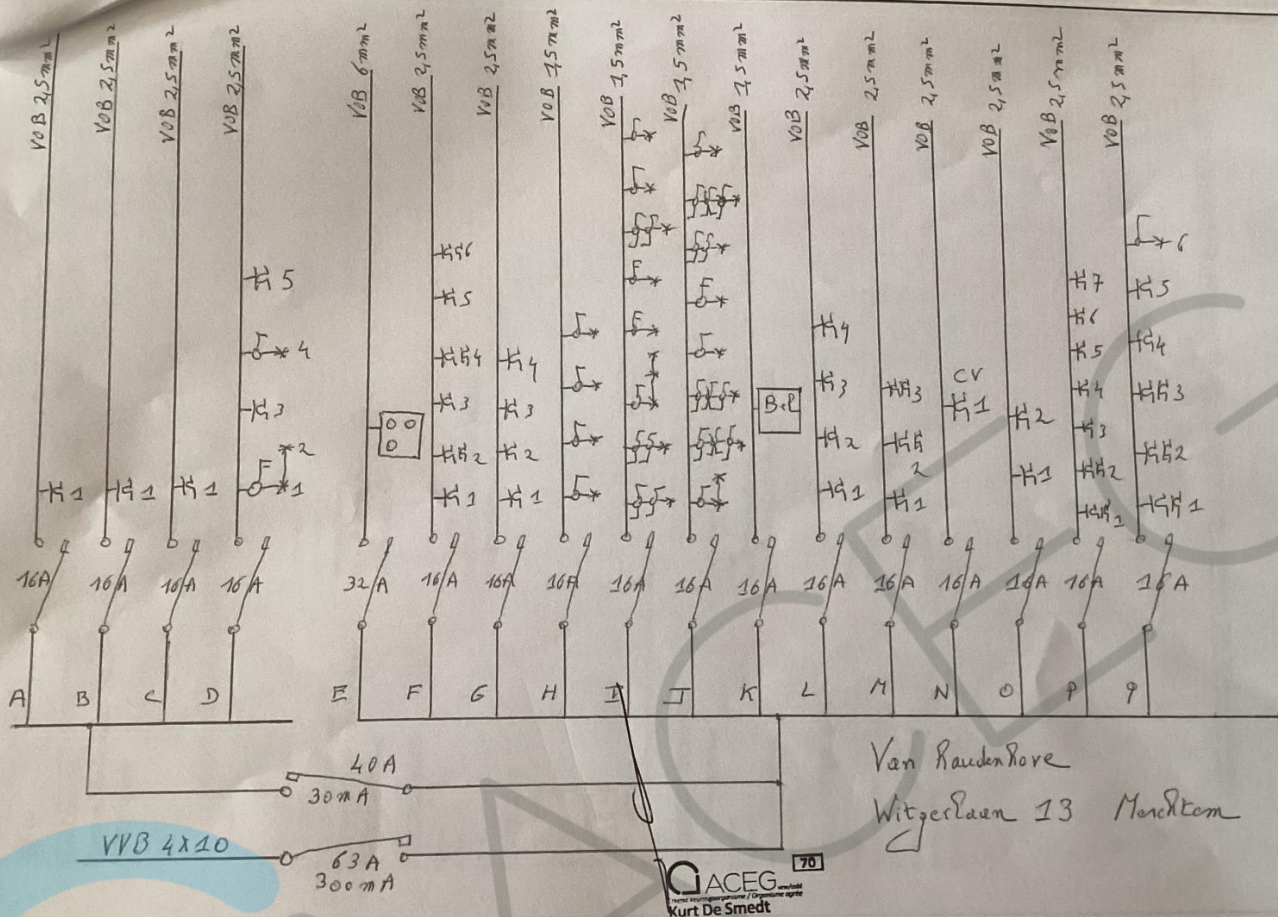 VOB 2,5mm²
VOB 2,5mm²
VOB 2,5mm²
VOB 2,5mm²
VOB 6mm²
VOB 2,5mm²
VOB 2,5mm²
VOB 1,5mm²
VOB 1,5mm²
VOB 1,5mm²
VOB 1,5mm²
VOB 2,5mm²
VOB 2,5mm²
VOB 2,5mm²
VOB 2,5mm²
VOB 2,5mm²
VOB 2,5mm²
1
1
1
5
4
3
2
1
6
5
4
3
2
1
4
3
2
1
Bel
4
3
2
1
3
2
1
CV
1
2
1
7
6
5
4
3
2
1
6
5
4
3
2
1
16A 16A 16A 16A 32A 16A 16A 16A 16A 16A 16A 16A 16A 16A 16A 16A 16A
A B C D E F G H I J K L M N O P Q
40A
30mA
VVB 4X10
63A
300mA
Van
13
70
ACEG
Kurt De Smedt